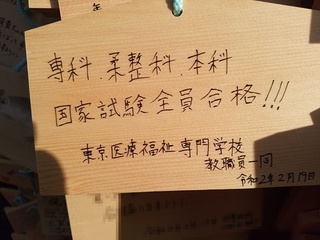 専科.柔整科.本科
国家試験全員合格!!!
東京医療福祉専門学校
教職員一同
令和2年2月19日